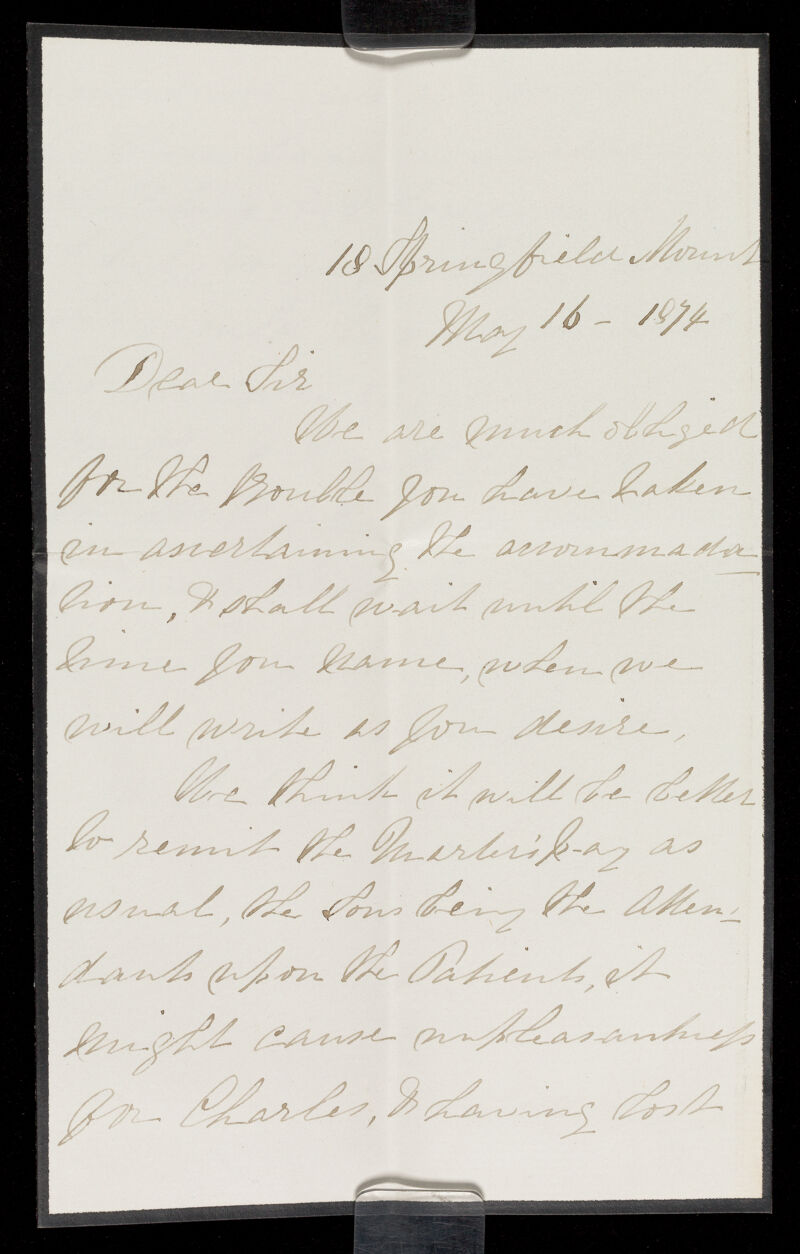 18 Springfield Mount
May 16 - 1874
Dear Sir
We are much obliged
for the trouble you have taken
in ascertaining the accommoda
tion, & shall wait until the
time you name, when we
will write as you desire.
We think it will be better
to remit the Master's pay as
usual, the Sons being the Atten-
dants upon the Patients, it
might cause unpleasantness
for Charles, & having lost